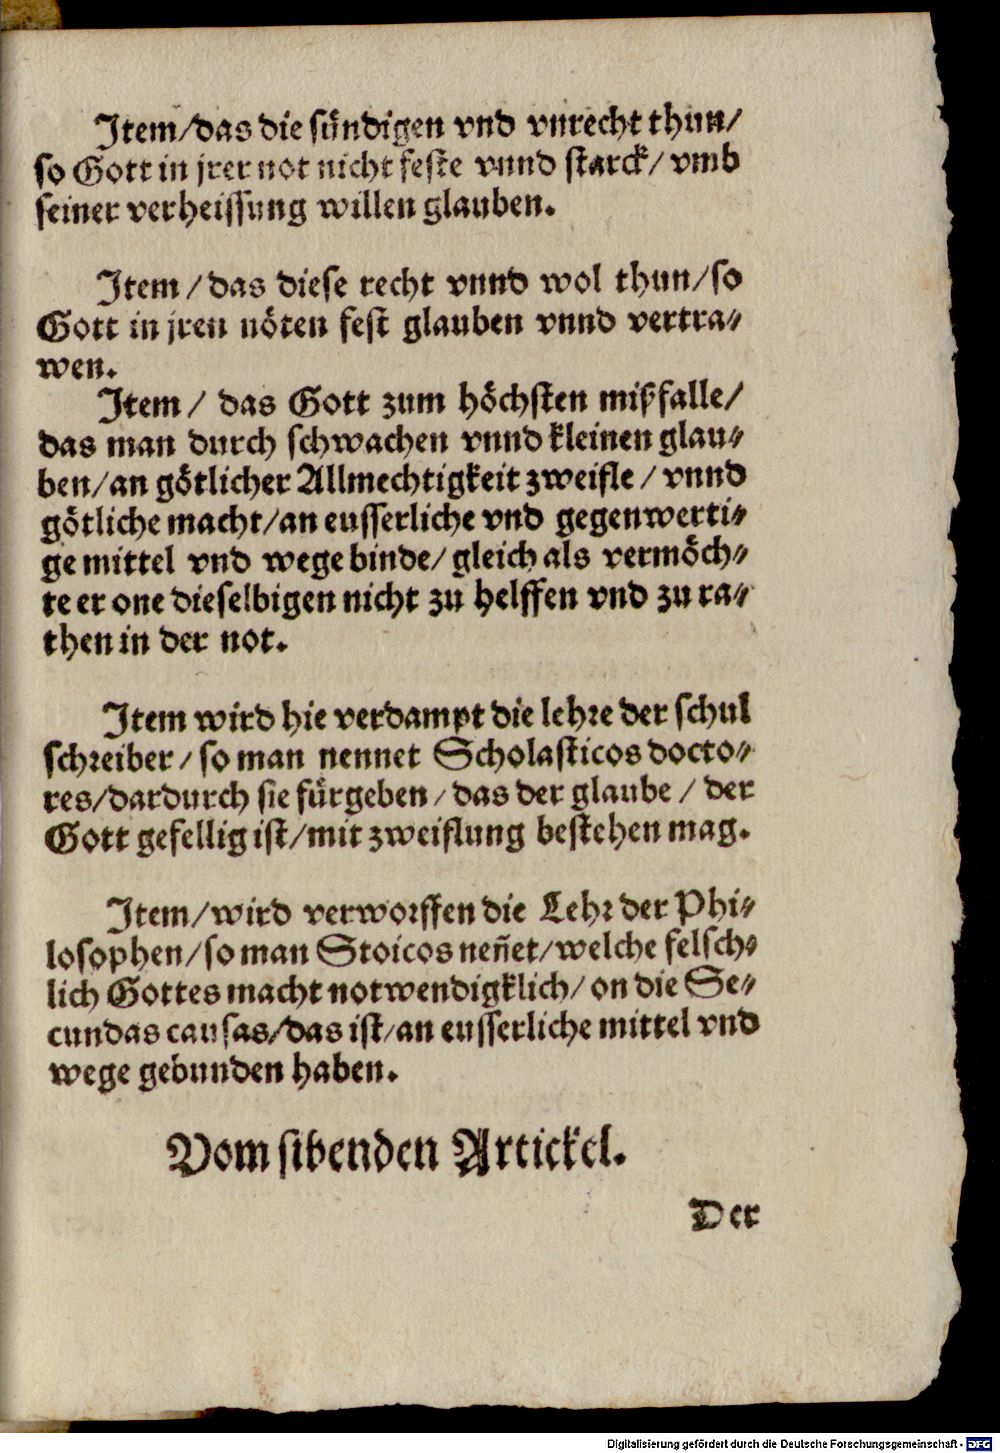 Item/das die sündigen vnd vnrecht thun/
so Gott in jrer not nicht feste vnnd starck/ vmb
seiner verheissung willen glauben.
Item / das diese recht vnnd wol thun/so
Gott in jren nöten fest glauben vnnd vertra⸗
wen.
Item / das Gott zum höchsten mißfalle/
das man durch schwachen vnnd kleinen glau⸗
ben/an götlicher Allmechtigkeit zweifle / vnnd
götliche macht/an eusserliche vnd gegenwerti⸗
ge mittel vnd wege binde/ gleich als vermöch⸗
te er one dieselbigen nicht zu helffen vnd zu ra⸗
then in der not.
Item wird hie verdampt die lehre der schul
schreiber/ so man nennet Scholasticos docto⸗
res/dardurch sie fürgeben / das der glaube / der
Gott gefellig ist/mit zweiflung bestehen mag.
Item/wird verworffen die Lehr der Phi⸗
losophen/so man Stoicos neñet/welche felsch⸗
lich Gottes macht notwendigklich/ on die Se⸗
cundas causas/das ist/an eusserliche mittel vnd
wege gebunden haben.
Vom sibenden Artickel.
Der
Digitalisierung gefördert durch die Deutsche Forschungsgemeinschaft - DFG